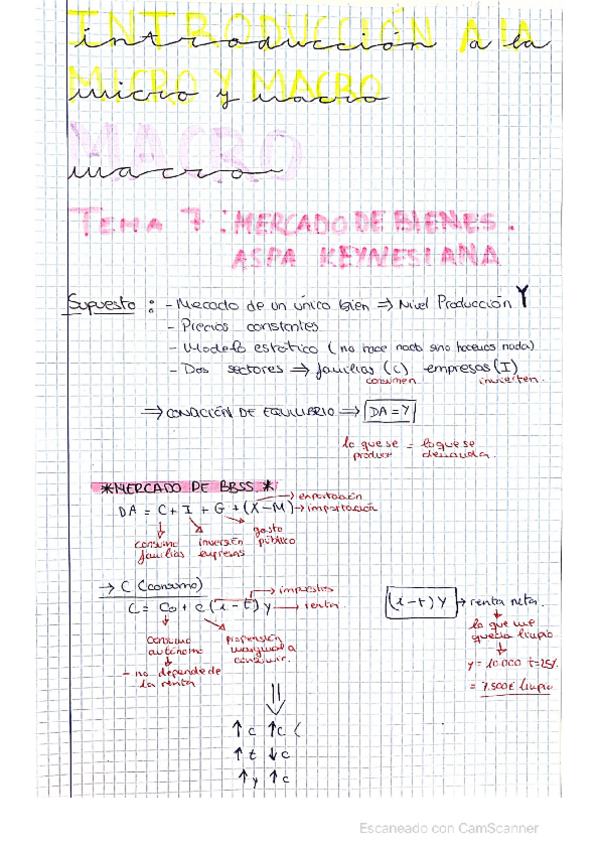 INTRODUCCIÓN A LA
introducción a la
MICRO Y MACRO
micro y macro
MACRO
macro
TEMA 7: MERCADO DE BIENES.
ASPA KEYNESIANA
Supuesto: - Mercado de un único bien ⇒ Nivel Producción Y
- Precios constantes
- Modelo estático (no hace nada sino hacemos nada)
- Dos sectores ⇒ familias (C) empresas (I)
consumen invierten.
⇒ CONDICIÓN DE EQUILIBRIO ⇒ DA = Y
lo que se = lo que se
produce demanda.
*MERCADO DE BBSS.*
→ exportación
DA = C + I + G + (X-M) → importación
consumo inversión gasto
familias empresas público
→ C (consumo)
→ impuestos
C = C0 + c (1-t) y → renta
(1-t) Y → renta neta.
lo que me
queda limpio
consumo propensión
autónomo marginal a
consumir.
y = 10000 t=25%
- no depende de = 7.500€ limpio
la renta
⇓
↑c ↑C (
↑t ↓c
↑y ↑c
Escaneado con CamScanner